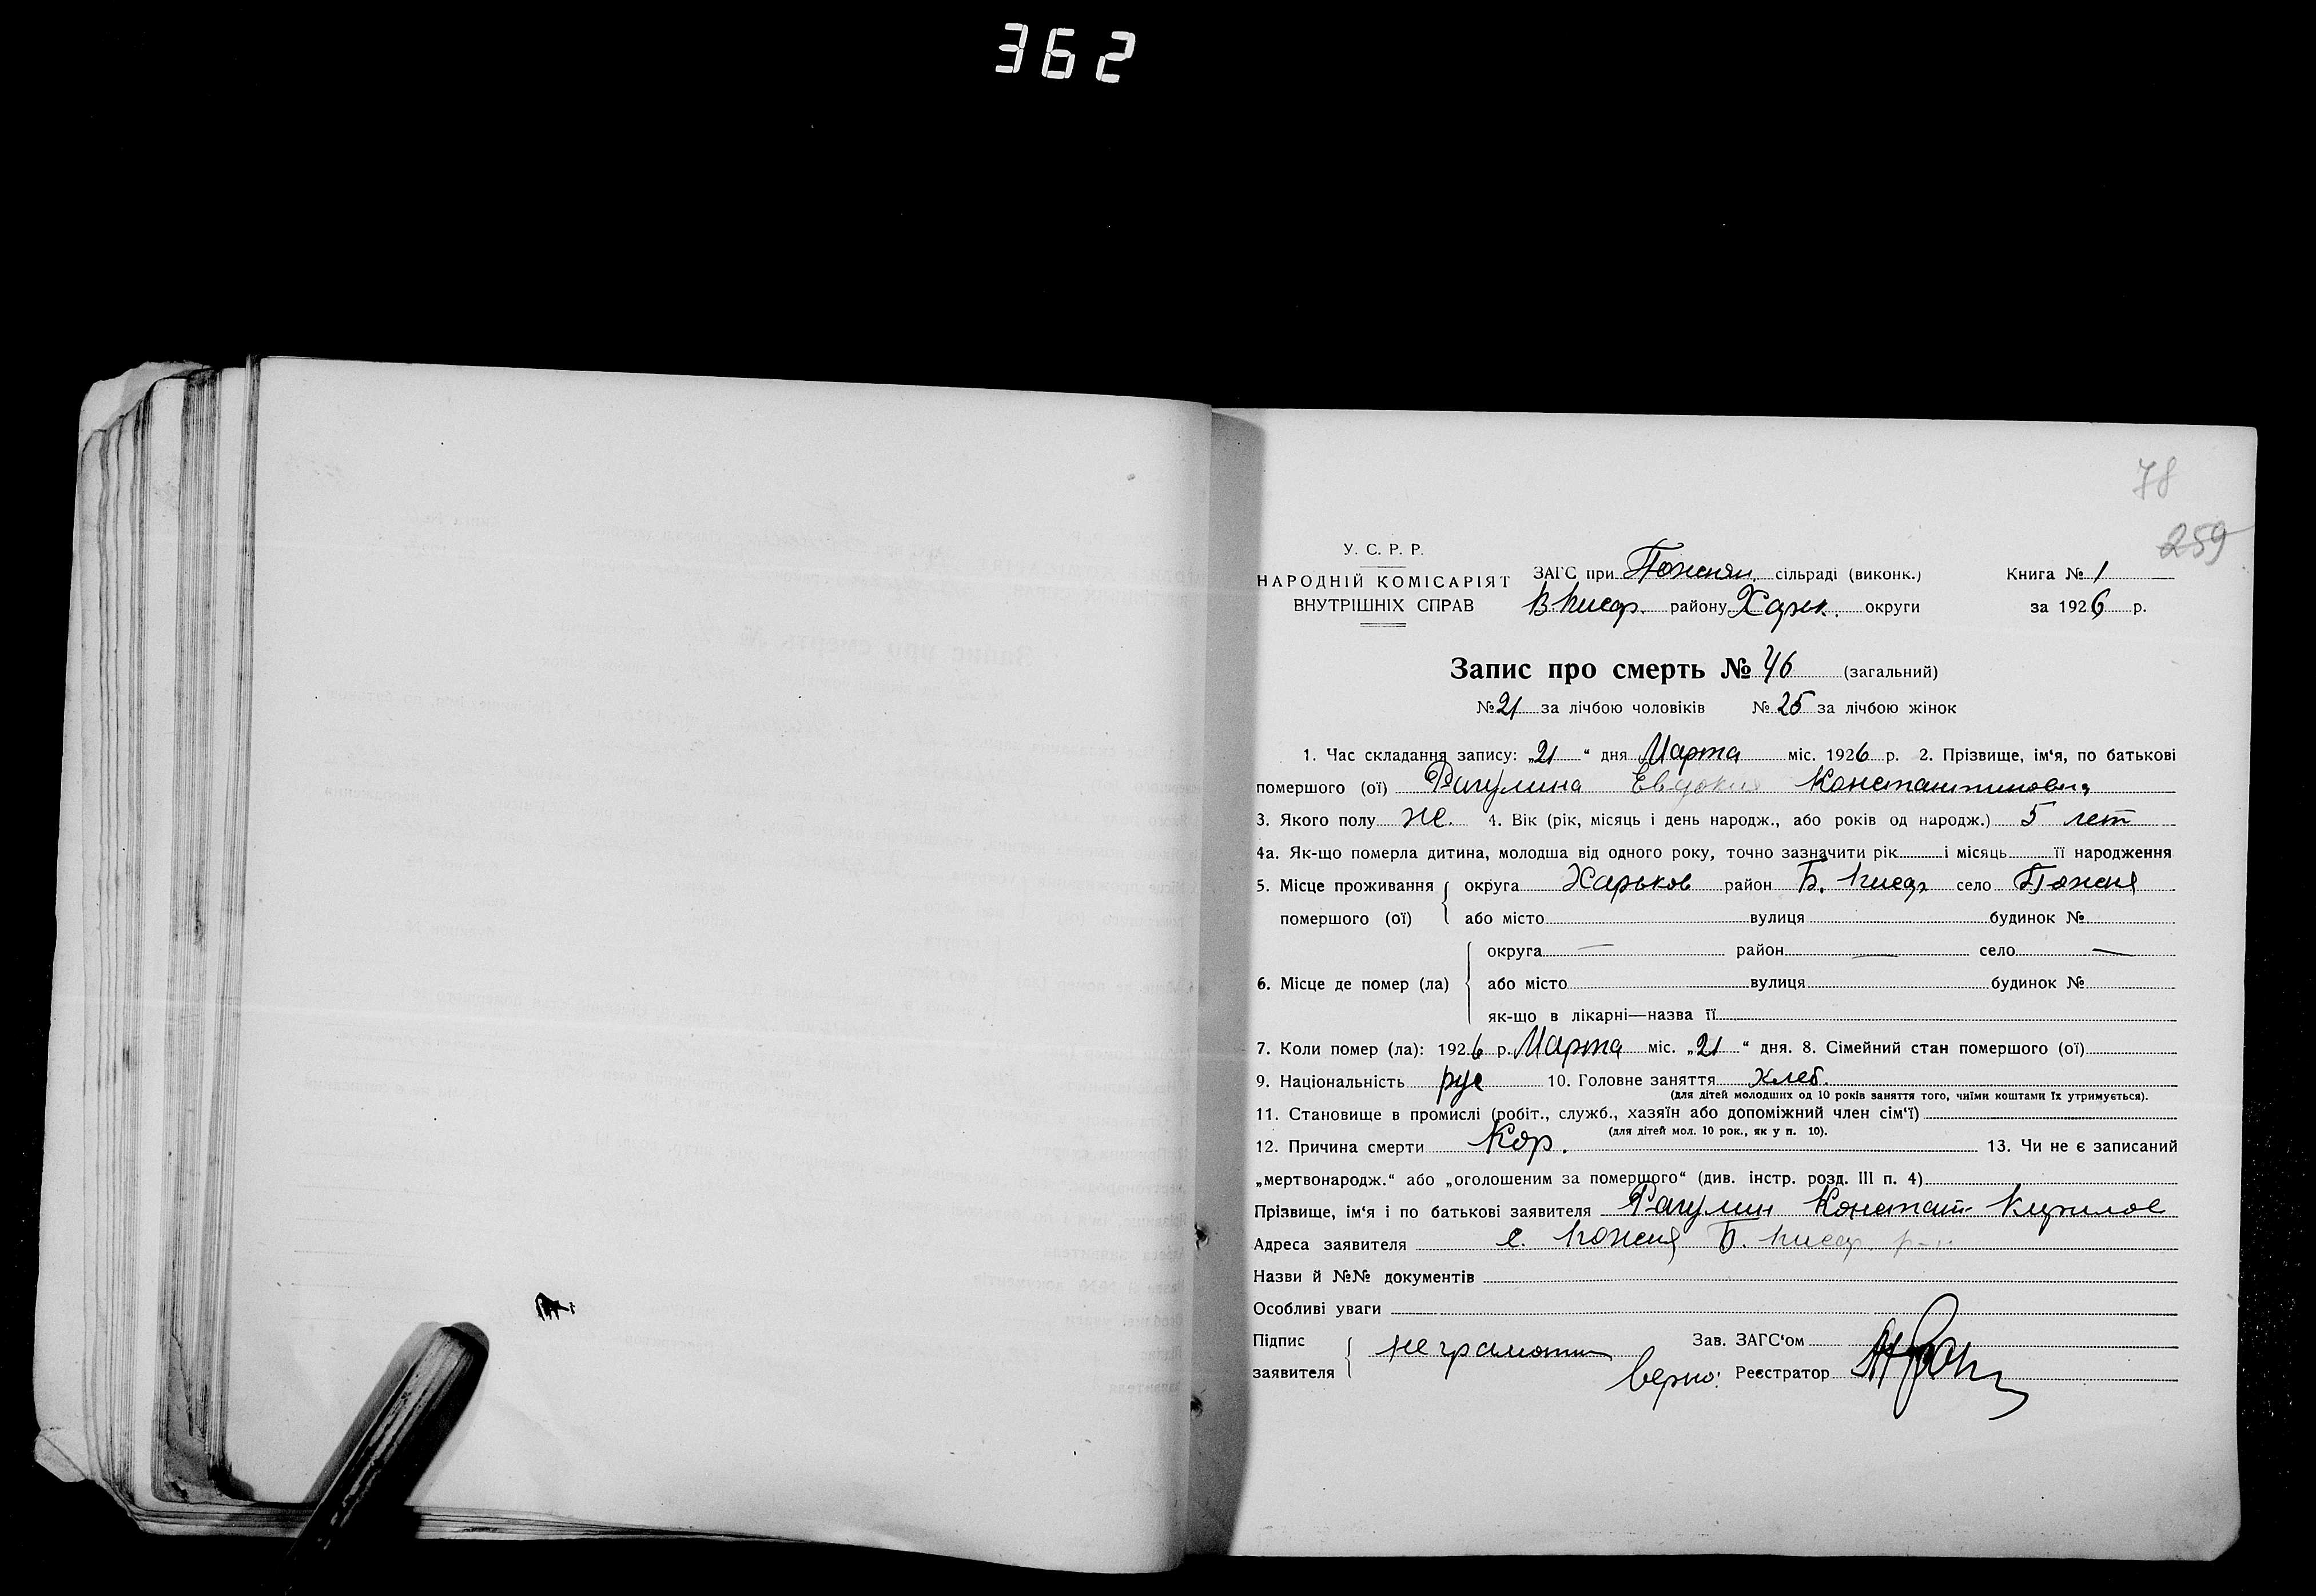 362
78
259
У. С. Р. Р.
НАРОДНІЙ КОМІСАРІЯТ
ВНУТРІШНІХ СПРАВ
ЗАГС при Пожнян. сільраді (виконк.)
району Харк. округи
Книга № 1
за 1926 р.
Запис про смерть № 46 (загальний)
№ 21 за лічбою чоловіків № 25 за лічбою жінок
1. Час складання запису: „21“ дня Марта міс. 1926 р. 2. Прізвище, ім‘я, по батькові
помершого (ої) Рагулина Евдокия Константиновна
3. Якого полу же. 4. Вік (рік, місяць і день народж., або років од народж.) 5 лет
4а. Як-що померла дитина, молодша від одного року, точно зазначити рік і місяць її народження
5. Місце проживання помершого (ої) округа Харьков район Б. Писар село Пожня
або місто вулиця будинок №
6. Місце де помер (ла) округа — район — село —
або місто вулиця будинок №
як-що в лікарні—назва її
7. Коли помер (ла): 1926 р. Марта міс. „21“ дня. 8. Сімейний стан помершого (ої)
9. Національність рус 10. Головне заняття хлеб.
(для дітей молодших од 10 років заняття того, чиїми коштами їх утримується).
11. Становище в промислі (робіт., служб., хазяїн або допоміжний член сім‘ї)
(для дітей мол. 10 рок., як у п. 10).
12. Причина смерти Кор. 13. Чи не є записаний
„мертвонародж.“ або „оголошеним за помершого“ (див. інстр. розд. III п. 4)
Прізвище, ім‘я і по батькові заявителя Рагулин Констант Кирилов
Адреса заявителя с. Пожня Б. Писар. р-н
Назви й №№ документів
Особливі уваги
Підпис заявителя неграмотн Зав. ЗАГС‘ом
Верно: Реєстратор